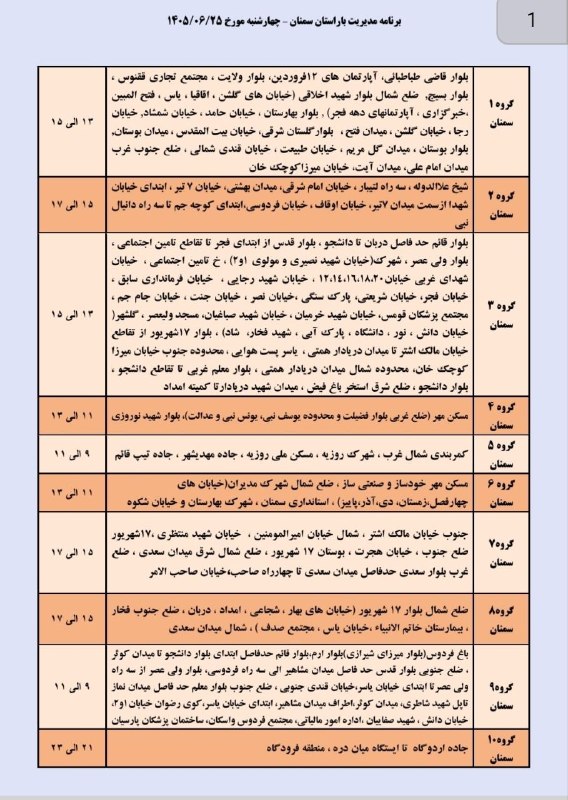 1
برنامه مدیریت بار استان سمنان - چهارشنبه مورخ ۱۴۰۵/۰۶/۲۵
گروه ۱
سمنان
بلوار قاضی طباطبائی، آپارتمان های ۱۲فروردین، بلوار ولایت ، مجتمع تجاری ققنوس ،
بلوار بسیج، ضلع شمال بلوار شهید اخلاقی (خیابان های گلشن ، اقاقیا ، یاس ، فتح المبین
،خبرگزاری ، آپارتمانهای دهه فجر) , بلوار بهارستان ، خیابان حامد ، خیابان شمشاد, خیابان
رجا ، خیابان گلشن ، میدان فتح ، بلوارگلستان شرقی، خیابان بیت المقدس، میدان بوستان,
بلوار بوستان ، میدان گل مریم ، خیابان طبیعت ، خیابان قندی شمالی ، ضلع جنوب غرب
میدان امام علی، میدان آیت، خیابان میرزاکوچک خان
۱۳ الی ۱۵
گروه ۲
سمنان
شیخ علاالدوله ، سه راه لتیبار ، خیابان امام شرقی، میدان بهشتی، خیابان ۷ تیر ، ابتدای خیابان
شهدا ازسمت میدان ۷تیر، خیابان اوقاف ، خیابان فردوسی،ابتدای کوچه جم تا سه راه دانیال
نبی
۱۵ الی ۱۷
گروه ۳
سمنان
بلوار قائم حد فاصل دربان تا دانشجو ، بلوار قدس از ابتدای فجر تا تقاطع تامین اجتماعی ،
بلوار ولی عصر ، شهرک(خیابان شهید نصیری و مولوی ۱و۲) ، خ تامین اجتماعی ، خیابان
شهدای غربی خیابان۱۲،۱۴،۱۶،۱۸،۲۰ ، خیابان شهید رجایی ، خیابان فرمانداری سابق ،
خیابان فجر، خیابان شریعتی، پارک سنگی،خیابان نصر ، خیابان جنت ، خیابان جام جم ،
مجتمع پزشکان قومس، خیابان شهید خرمیان ، خیابان شهید صباغیان، مسجد ولیعصر ، گلشهر(
خیابان دانش ، نور ، دانشگاه ، پارک آبی ، شهید فخار، شاد) ، بلوار ۱۷شهریور از تقاطع
خیابان مالک اشتر تا میدان دریادار همتی ، یاسر پست هوایی ، محدوده جنوب خیابان میرزا
کوچک خان، محدوده شمال میدان دریادار همتی ، بلوار معلم غربی تا تقاطع دانشجو ،
بلوار دانشجو ، ضلع شرق استخر باغ فیض ، میدان شهید دریادارتا کمیته امداد
۱۳ الی ۱۵
گروه ۴
سمنان
مسکن مهر (ضلع غربی بلوار فضیلت و محدوده یوسف نبی، یونس نبی و عدالت)، بلوار شهید نوروزی
۱۱ الی ۱۳
گروه ۵
سمنان
کمربندی شمال غرب ، شهرک روزیه ، مسکن ملی روزیه ، جاده مهدیشهر ، جاده تیپ قائم
۹ الی ۱۱
گروه ۶
سمنان
مسکن مهر خودساز و صنعتی ساز ، ضلع شمال شهرک مدیران(خیابان های
چهارفصل،زمستان، دی،آذر،پاییز) ، استانداری سمنان ، شهرک بهارستان و خیابان شکوه
۱۱ الی ۱۳
گروه۷
سمنان
جنوب خیابان مالک اشتر ، شمال خیابان امیرالمومنین ، خیابان شهید منتظری ،۱۷شهریور
ضلع جنوب ، خیابان هجرت ، بوستان ۱۷ شهریور ، ضلع شمال شرق میدان سعدی ، ضلع
غرب بلوار سعدی حدفاصل میدان سعدی تا چهارراه صاحب،خیابان صاحب الامر
۱۵ الی ۱۷
گروه۸
سمنان
ضلع شمال بلوار ۱۷ شهریور (خیابان های بهار ، شجاعی ، امداد ، دربان ، ضلع جنوب فخار
، بیمارستان خاتم الانبیاء ،خیابان یاس ، مجتمع صدف ) ، شمال میدان سعدی
۱۵ الی ۱۷
گروه۹
سمنان
باغ فردوس(بلوار میرزای شیرازی)بلوار ارم،بلوار قائم حدفاصل ابتدای بلوار دانشجو تا میدان کوثر
، ضلع جنوبی بلوار قدس حد فاصل میدان مشاهیر الی سه راه فردوسی، بلوار ولی عصر از سه راه
ولی عصرتا ابتدای خیابان یاسر،خیابان قندی جنوبی ، ضلع جنوب بلوار معلم حد فاصل میدان نماز
تاپل شهید شاطری، میدان کوثر،اطراف میدان مشاهیر، ابتدای خیابان یاسر،کوی رضوان خیابان ۱و۲،
خیابان دانش ، شهید صفاییان ،اداره امور مالیاتی، مجتمع فردوس واسکان، ساختمان پزشکان پارسیان
۹ الی ۱۱
گروه۱۰
سمنان
جاده اردوگاه تا ایستگاه میان دره ، منطقه فرودگاه
۲۱ الی ۲۳